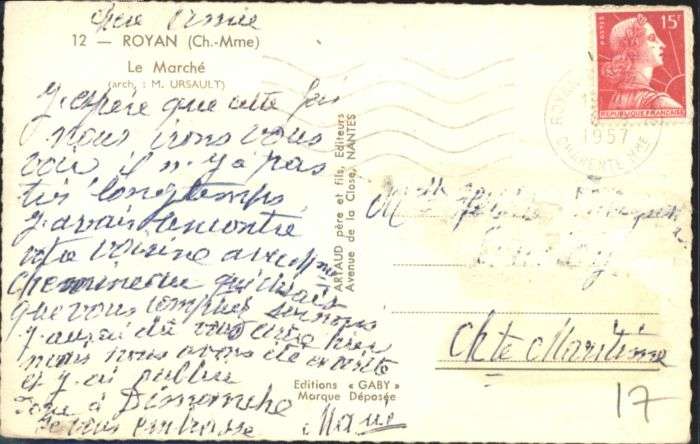 chère
12 — ROYAN (Ch.-Mme)
Le Marché
(arch. : M. URSAULT)
J'espère que cette fois
nous irons vous
voir il n'y a pas
très longtemps
j'avais rencontré
votre voisine avec Mme
qui disait
que vous comptiez sur nous
j'aurai dû vous écrire hier
mais nous avons été
et j'ai oublié
Donc à Dimanche
Je vous embrasse
ARTAUD père et fils, Editeurs
Avenue de la Close, NANTES
Editions « GABY »
Marque Déposée
POSTES
15F
REPUBLIQUE FRANÇAISE
ROYAN
1957
CHARENTE MME
M
Chte Maritime
17